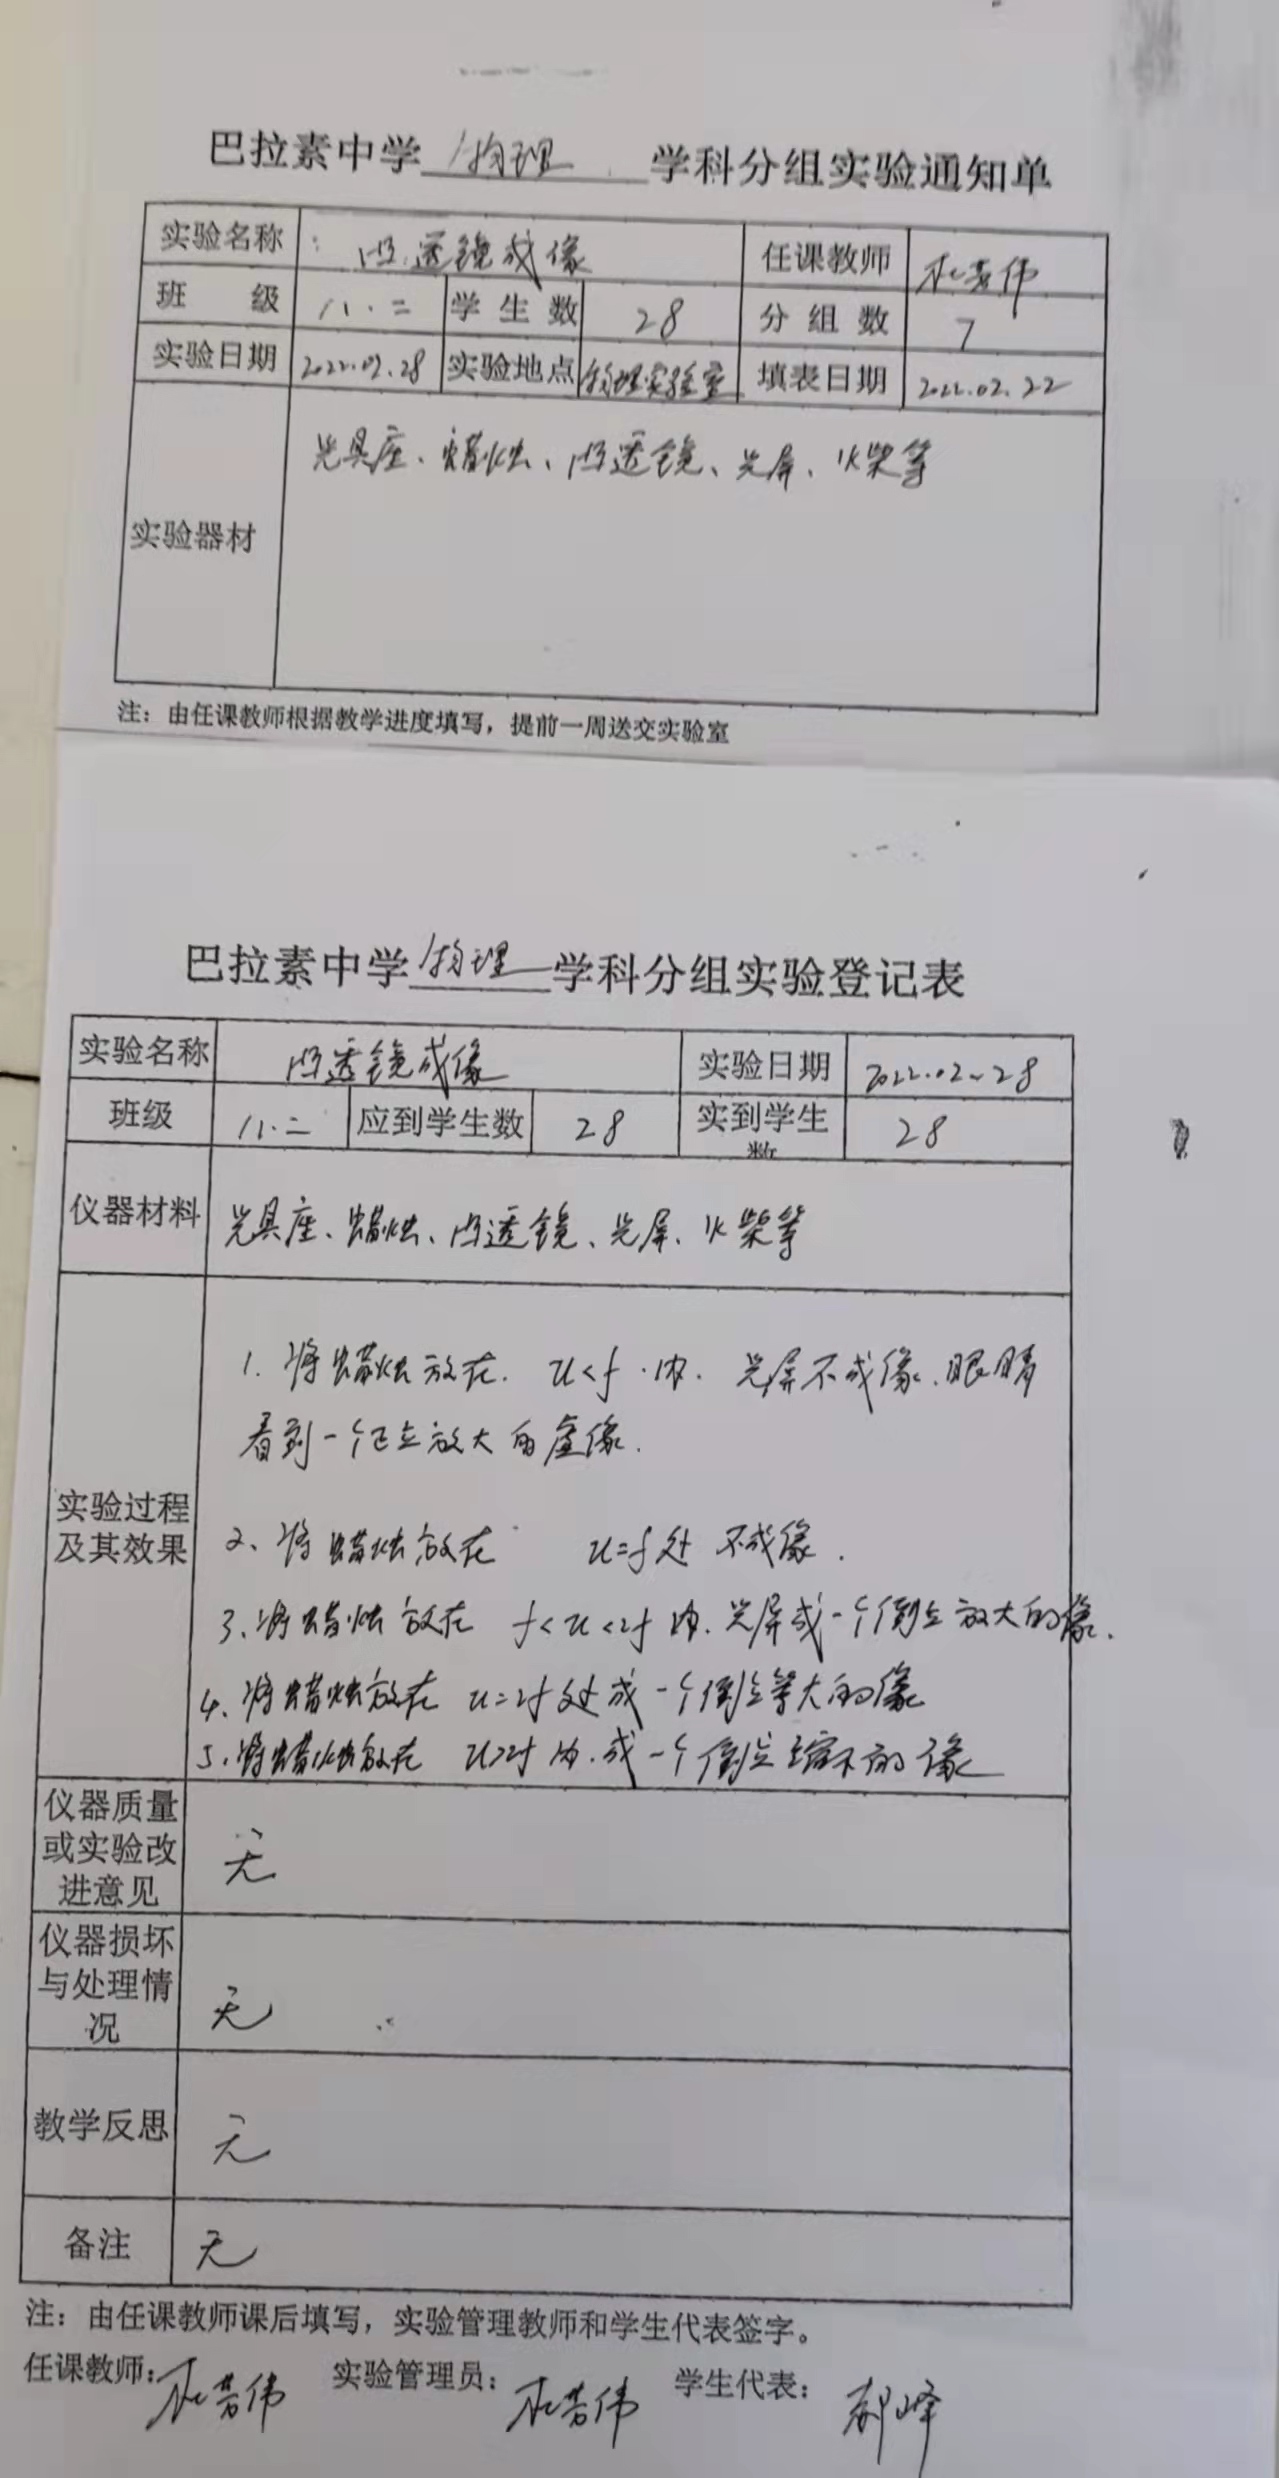 巴拉素中学 物理 学科分组实验通知单
实验名称 凸透镜成像 任课教师 杜芳伟
班 级 八.二 学生数 28 分组数 7
实验日期 2022.02.28 实验地点 物理实验室 填表日期 2022.02.22
实验器材 光具座、蜡烛、凸透镜、光屏、火柴等
注：由任课教师根据教学进度填写，提前一周送交实验室
巴拉素中学 物理 学科分组实验登记表
实验名称 凸透镜成像 实验日期 2022.02.28
班级 八.二 应到学生数 28 实到学生数 28
仪器材料 光具座、蜡烛、凸透镜、光屏、火柴等
实验过程及其效果
1. 将蜡烛放在. u<f.内. 光屏不成像.眼睛
看到一个正立放大的虚像.
2、将蜡烛放在 u=f处 不成像.
3、将蜡烛放在 f<u<2f 内.光屏成一个倒立放大的像.
4、将蜡烛放在 u=2f处成一个倒立等大的像
5、将蜡烛放在 u>2f 内.成一个倒立缩小的像
仪器质量或实验改进意见 无
仪器损坏与处理情况 无
教学反思 无
备注 无
注：由任课教师课后填写，实验管理教师和学生代表签字。
任课教师：杜芳伟 实验管理员：杜芳伟 学生代表：郝峰